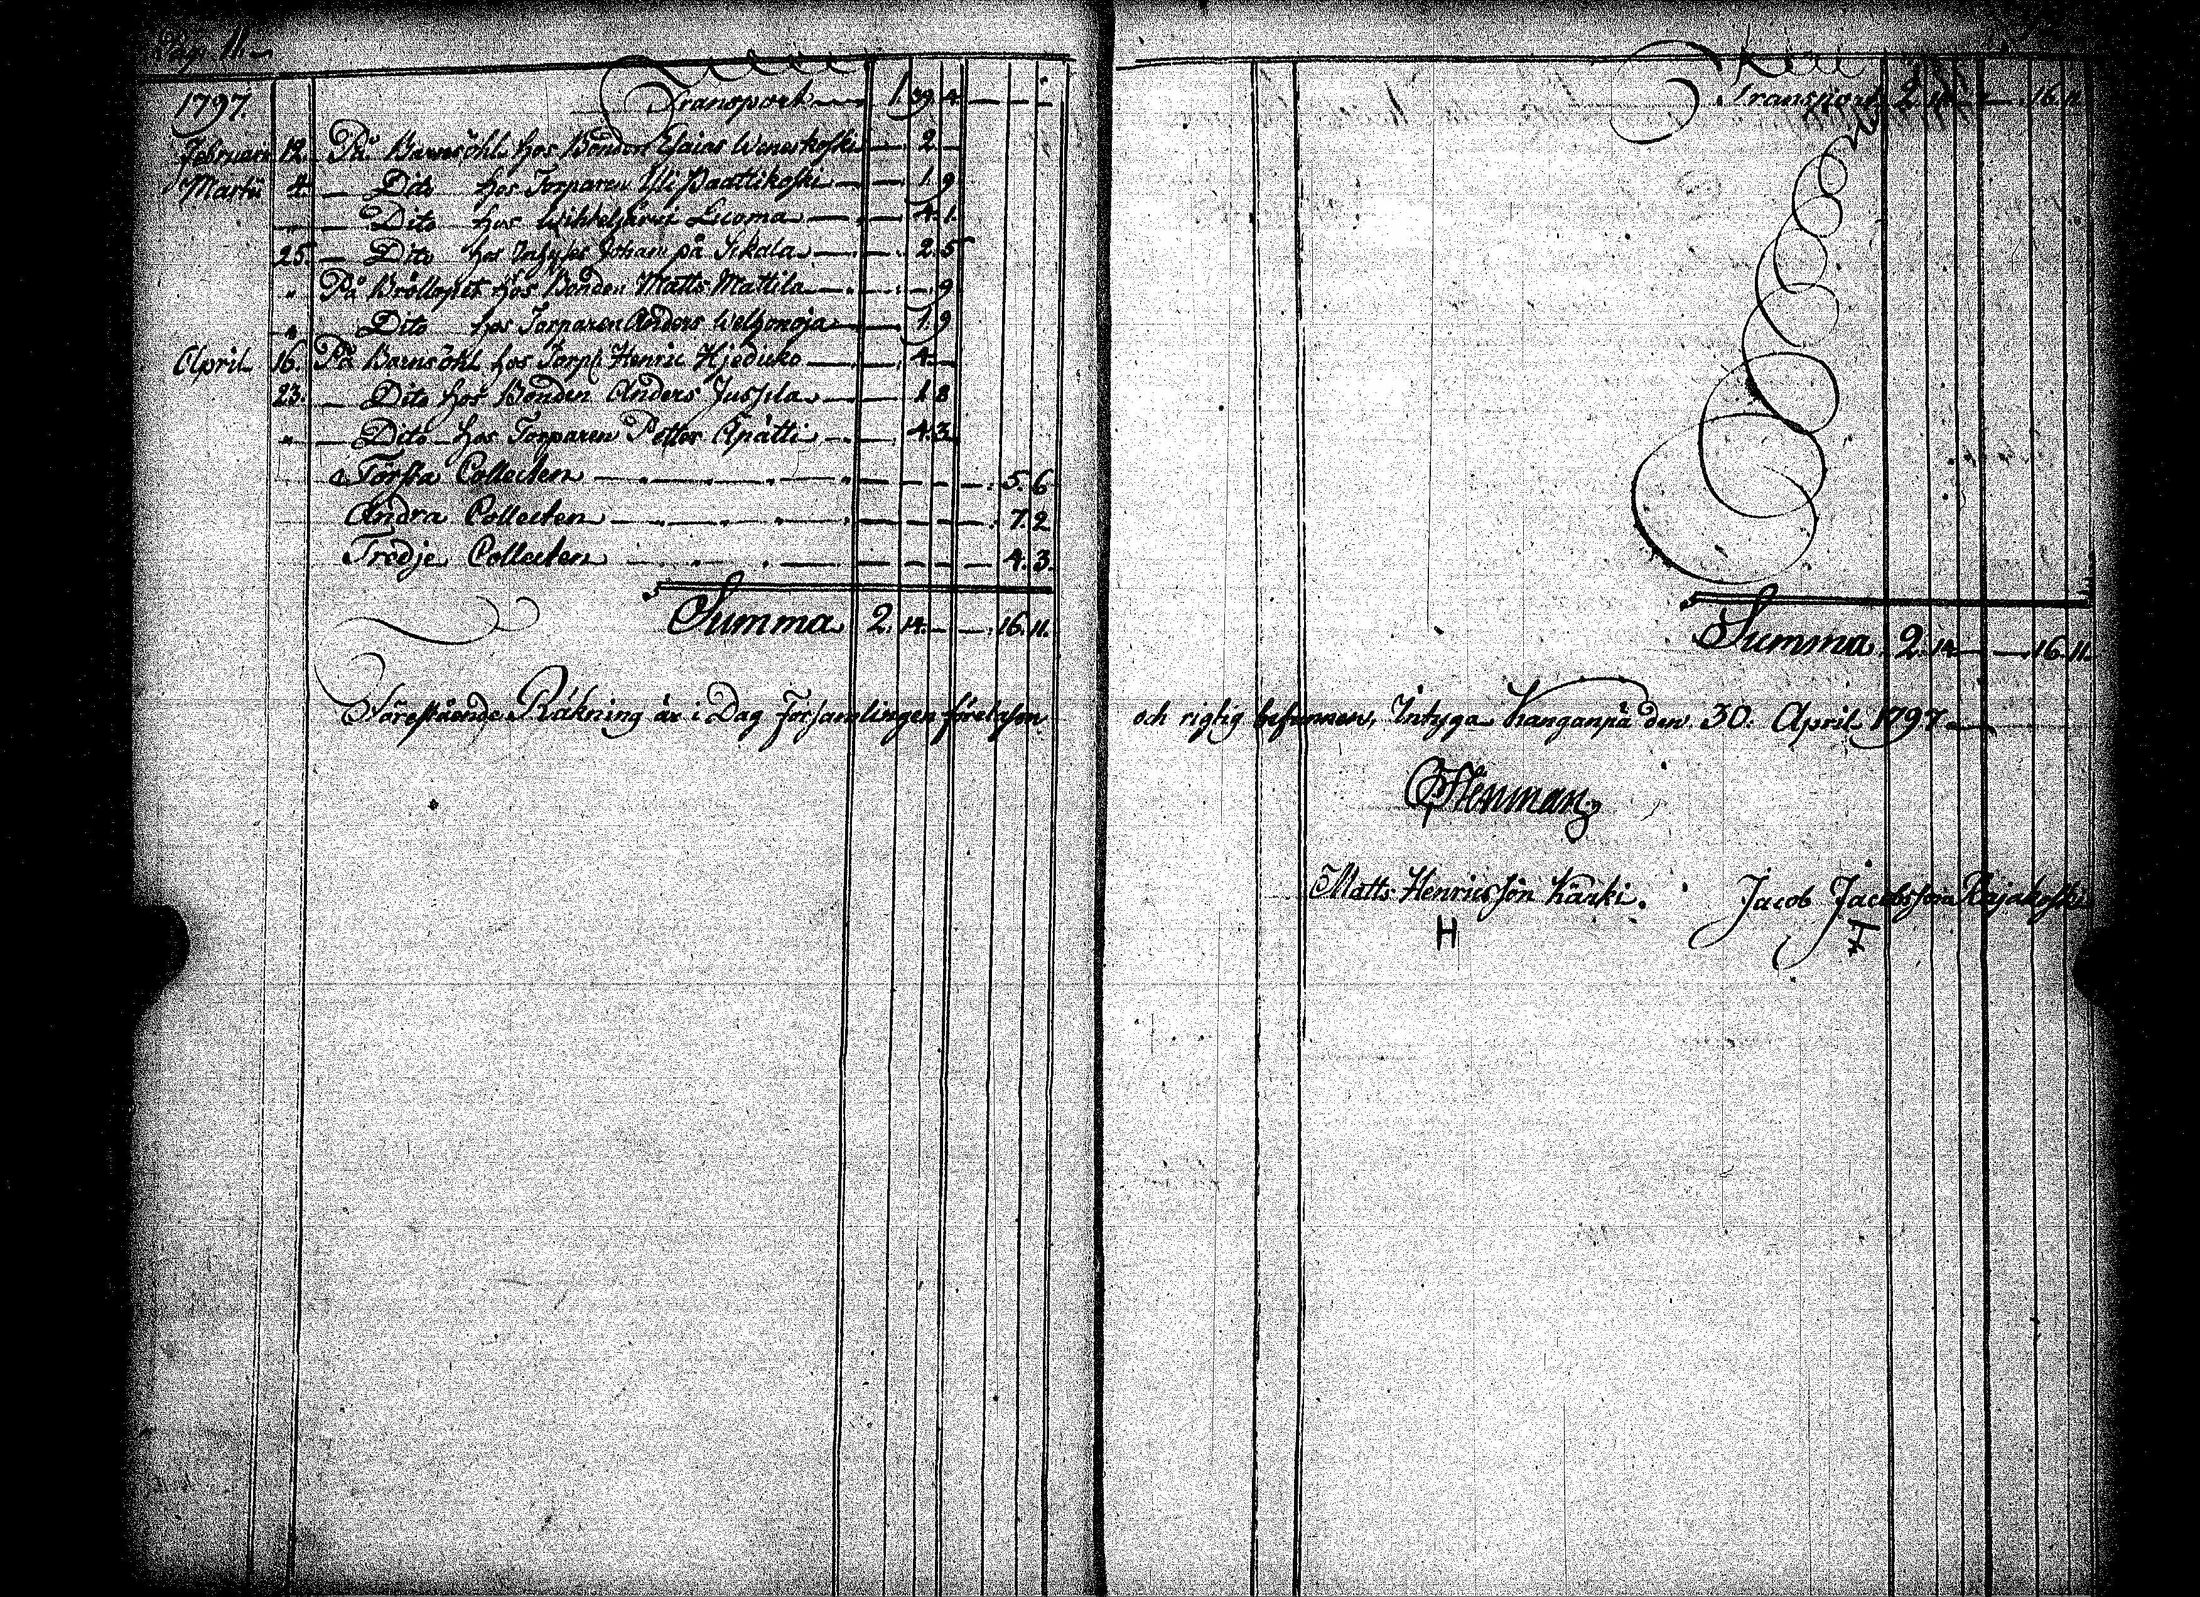 Pag. 11.
1797. Transport 1. 39. 4
Februari 12. På Barnsöhl hos Bonden Esaias Weneskoski 2
Martii 4 Dito hos Torparen Paattikoski 1. 9
Dito hos Luoma 4. 1.
25. Dito hos Inhyses Johan på Sikala 2. 5
" På Bröllopet hos Bonden Matts Mattila 9
" Dito hos Torparen Anders Welhonoja 1. 9
April 16. På Barnsöhl hos Torp. Henric 4
23. Dito hos Bonden Anders Jussila 1 8
" Dito hos Torparen Petter Apätti 4. 3
Första Collecten 5. 6
Andra Collecten 7. 2
Tredje Collecten 4. 3.
Summa 2. 14. 16. 11.
Förestående Räkning är i Dag Församlingen föreläsen
Transport 2 14 16. 11
Summa 2. 14 16 11
och rigtig befunnen, Intyga Kanganpä den 30. April 1797.
Stenman
Matts Henricsson Kärki. Jacob Jacobsson Rajakoski
H